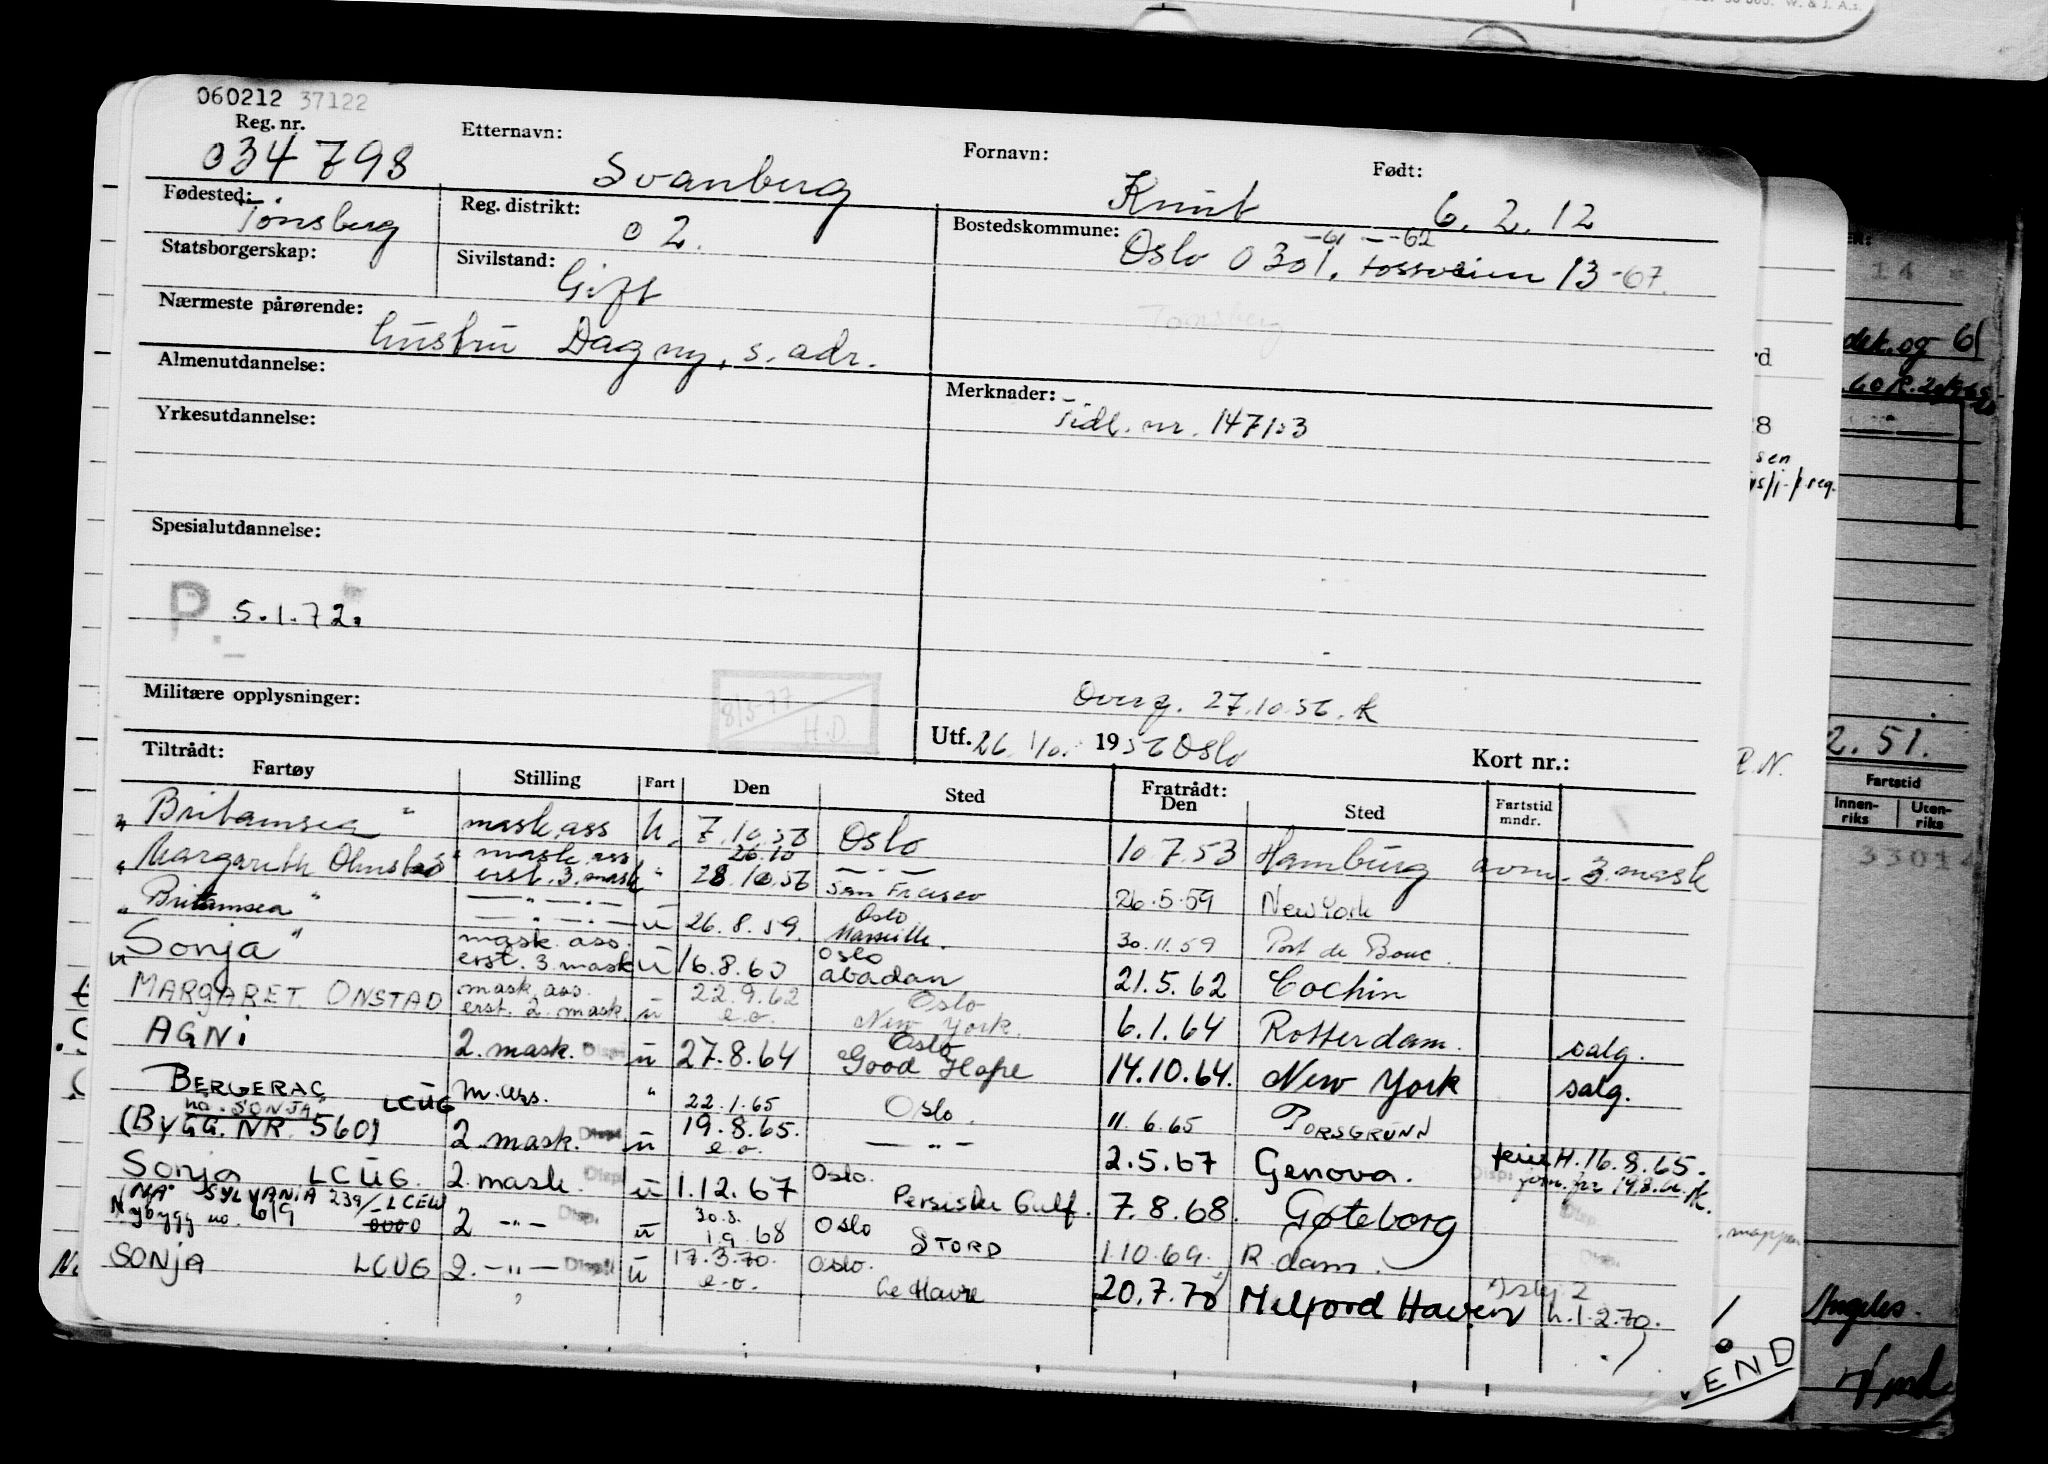 060212 37122
Reg. nr. Etternavn: Fornavn: Født:
034798 Svanberg Knut 6.2.12
Fødested: Reg. distrikt: Bostedskommune:
Tønsberg 02. Oslo 0301, 13 -67.
-61 - -62
Statsborgerskap: Sivilstand:
Gift
Tønsberg
Nærmeste pårørende:
hustru Dagny, s. adr.
Almenutdannelse: Merknader:
Tidl. nr. 147123
Yrkesutdannelse:
Spesialutdannelse:
P. 5.1.72.
Militære opplysninger:
8/5-77
H.D.
Overg. 27.10.56.
Utf. 26/10. 1956 Oslo Kort nr.:
Tiltrådt: Fratrådt:
Fartøy Stilling Fart Den Sted Den Sted Fartstid mndr.
"Britamsea" mask.ass u. 7.10.56 Oslo 10.7.53 Hamburg avm. 3.mask
26.10
"Margareth Onstad" mask.ass erst. 3. mask " 28.10.56 — " — San Francisco 26.5.59 New York
"Britamsea" — " — " — u 26.8.59. Oslo Marseille. 30.11.59 Port de Bouc.
"Sonja" mask. ass. erst. 3. mask u 16.8.60 Oslo abadan 21.5.62 Cochin
MARGARET ONSTAD mask. ass. erst. 2. mask. u 22.9.62 e.o. Oslo New York. 6.1.64 Rotterdam. salg.
AGNI 2. mask. Disp. u 27.8.64 Oslo Good Hope 14.10.64. New York salg.
BERGERAC LCUG m. ass. " 22.1.65 Oslo. 11.6.65 PORSGRUNN
nå. SONJA
(BYGG. NR. 560) 2. mask. Disp. u 19.8.65. e.o. — " — 2.5.67 Genova. H. 16.8.65.
Sonja LCUG. 2. mask. Disp. u 1.12.67 Oslo. Persiske Gulf. 7.8.68. Gøteborg
"NA" SYLVANIA 239/LCEW
Nybygg no. 619 0000 2 — " — Disp. u 30.8. 1.9 68 Oslo STORD 1.10.69. R.dam.
SONJA LCUG 2. — " — u 17.3.70. e.o. Oslo. Le Havre 20.7.70 Milford Haven h.1.2.70.
END
14
dek. og 61
rd
8
sen
/reg.
2.51.
R.N.
Fartstid
Innen-riks Uten-riks
33014
mappen
Angeles.